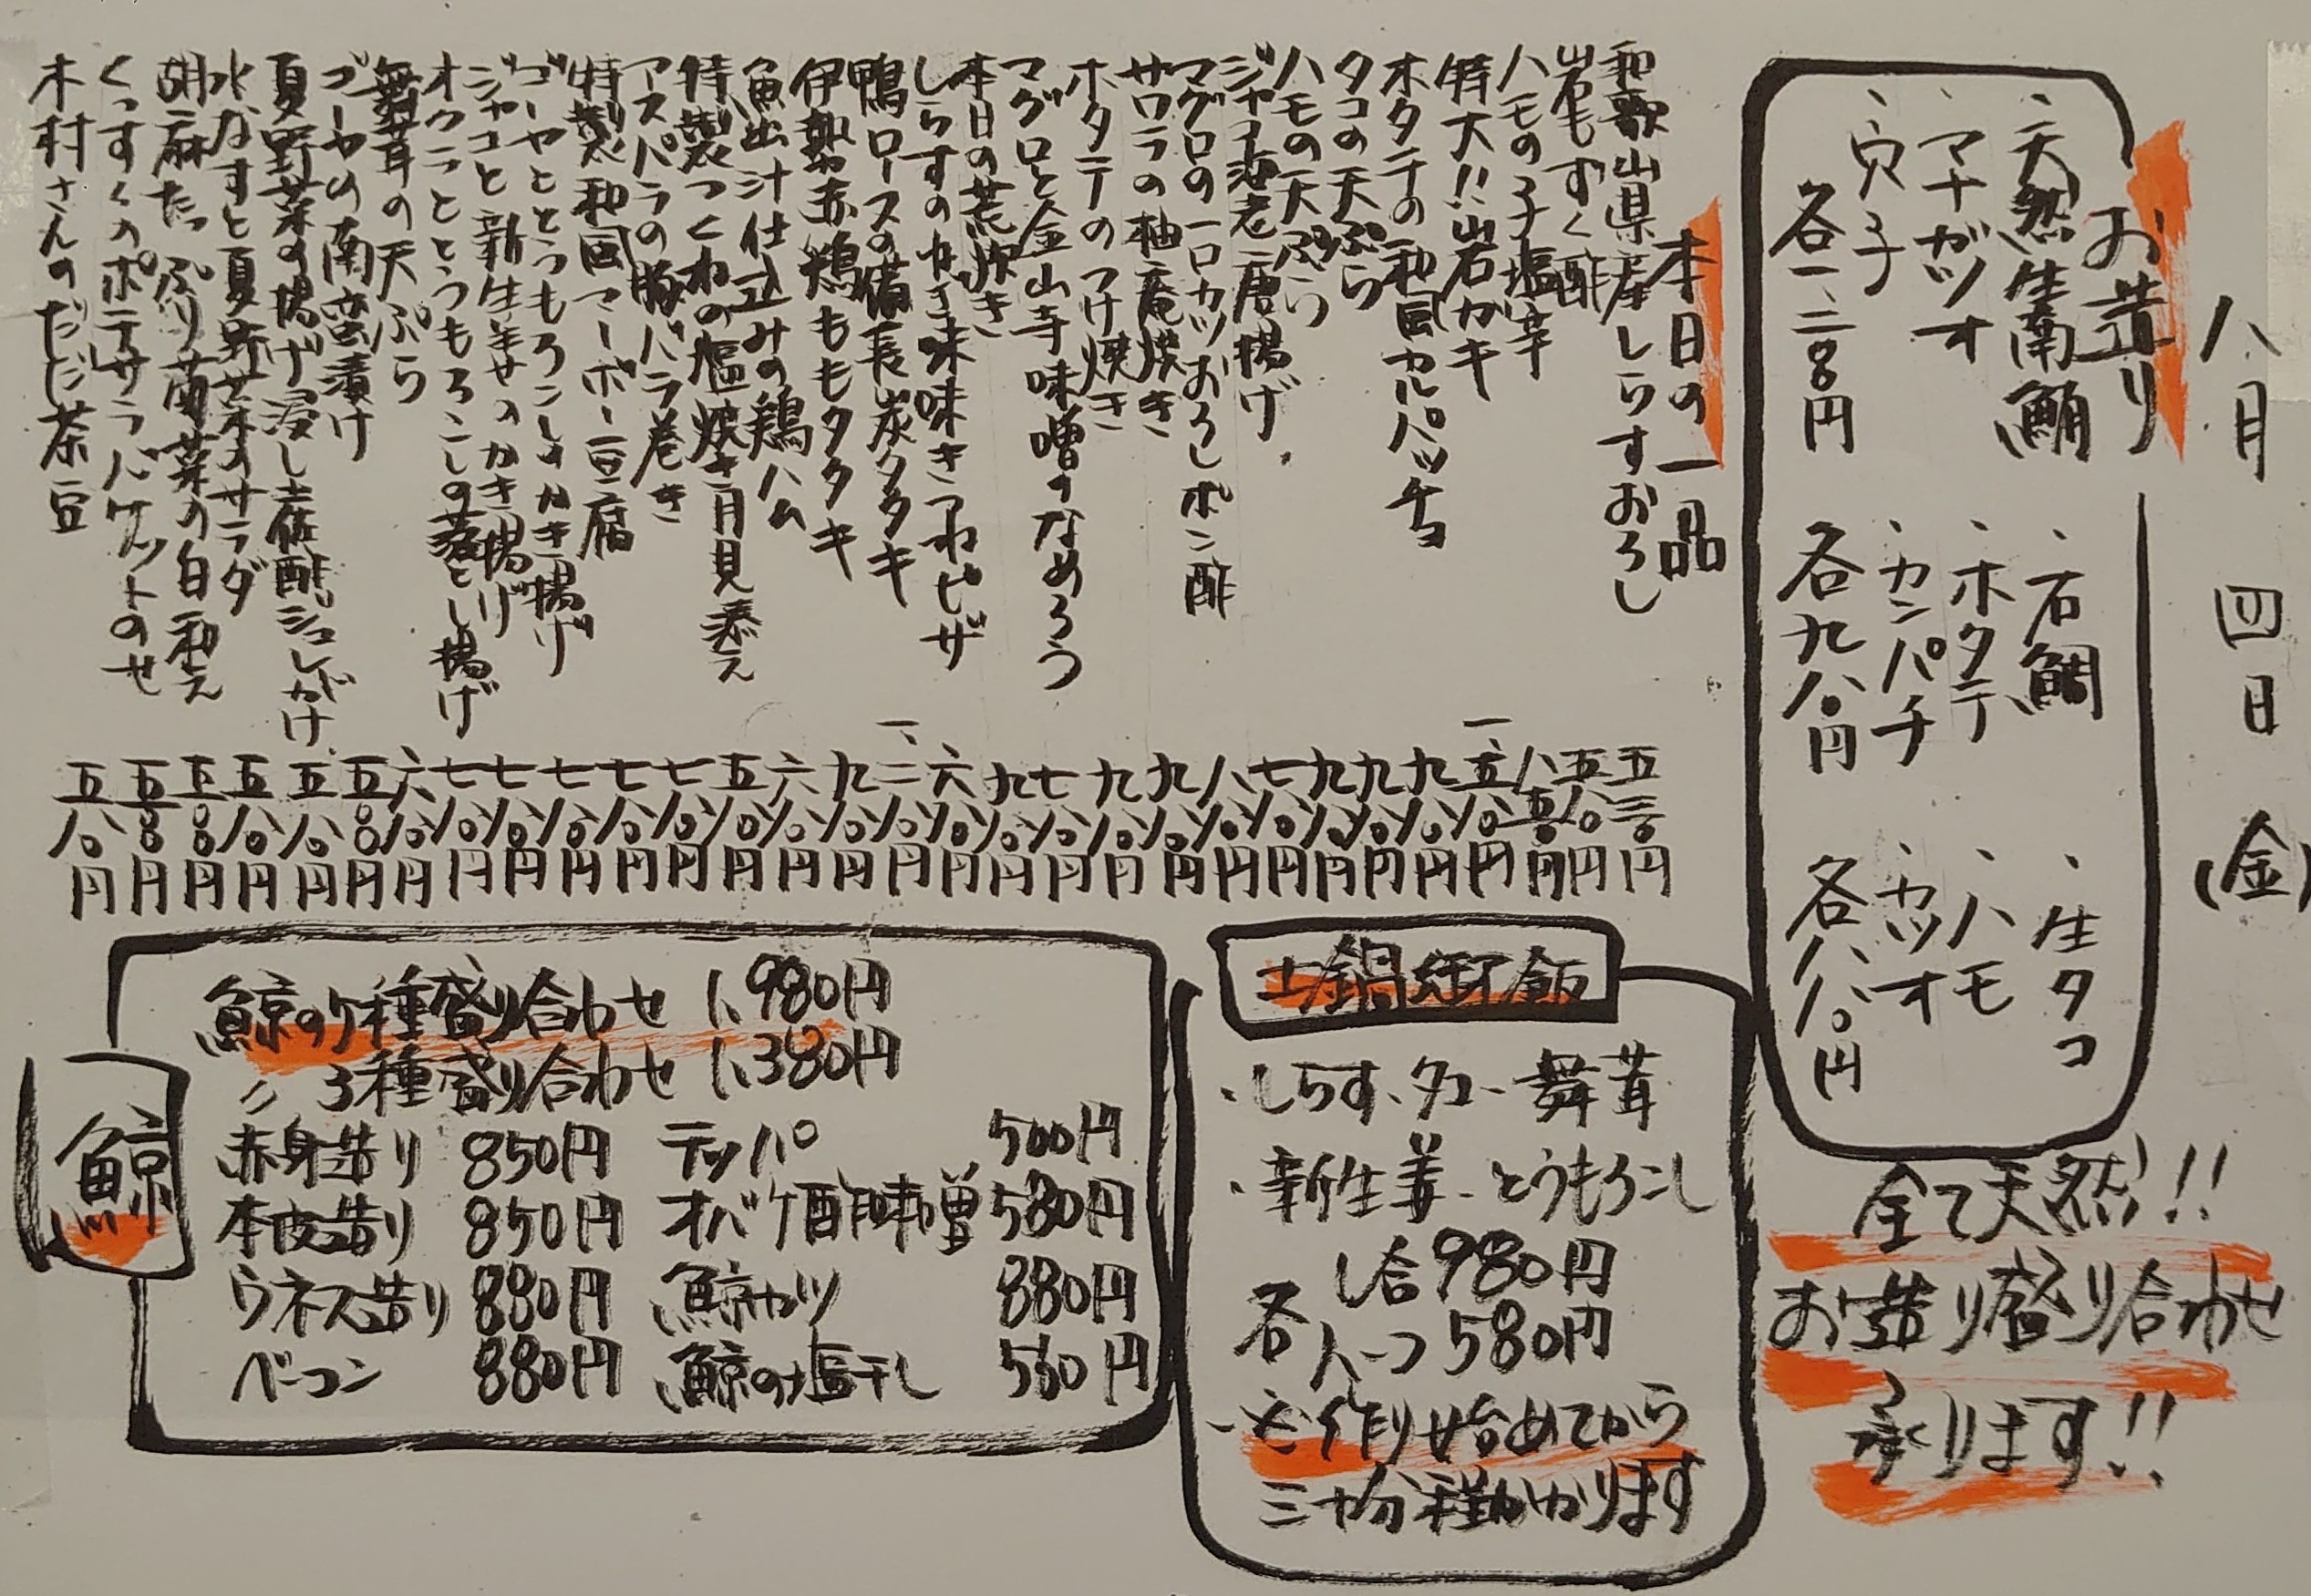 八月 四日 (金)
お造り
、天然生南鮪
、マナガツオ
、穴子
各一、二〇〇円
、石鯛
、ホタテ
、カンパチ
各九八〇円
、生タコ
、ハモ
、カツオ
各八八〇円
全て天然!!
お造り盛り合わせ
承ります!!
本日の一品
和歌山県産しらすおろし 五三〇円
岩もずく酢 五八〇円
ハモの子塩辛 八五〇円
特大!!岩ガキ 一、五八〇円
ホタテの和風カルパッチョ 九八〇円
タコの天ぷら 九八〇円
ハモの天ぷら 九八〇円
ジャコ海老唐揚げ 七八〇円
マグロの一口カツおろしポン酢 八八〇円
サワラの柚庵焼き 九八〇円
ホタテのつけ焼き 九八〇円
マグロと金山寺味噌のなめろう 七八〇円
本日の荒炊き 九八〇円
しらすのねぎ味噌きつねピザ 六八〇円
鴨ロースの備長炭タタキ 一、二八〇円
伊勢赤鶏ももタタキ 九八〇円
魚出汁仕込みの鶏ハム 六八〇円
特製つくねの塩焼き月見添え 五八〇円
アスパラの豚バラ巻き 七八〇円
特製和風マーボー豆腐 七八〇円
ゴーヤととうもろこしのかき揚げ 七八〇円
ジャコと新生姜のかき揚げ 七八〇円
オクラととうもろこしの落とし揚げ 七八〇円
舞茸の天ぷら 六八〇円
ゴーヤの南蛮漬け 五〇〇円
夏野菜の揚げ浸し土佐酢ジュレがけ 五八〇円
水なすと夏野菜のサラダ 五八〇円
胡麻たっぷり菊菜の白和え 五〇〇円
くずすくのポテサラバケットのせ 五〇〇円
木村さんのだだ茶豆 五八〇円
土鍋炊御飯
・しらす、タコ・舞茸
・新生姜・とうもろこし
各 1合980円
各 人一つ580円
・※作り始めてから
三十分程かかります
鯨
鯨の5種盛り合わせ 1,980円
〃 3種盛り合わせ 1,380円
赤身造り 850円 テッパ 500円
本皮造り 850円 オバケ酢味噌 580円
ウネス造り 880円 鯨カツ 880円
ベーコン 880円 鯨の塩干し 550円